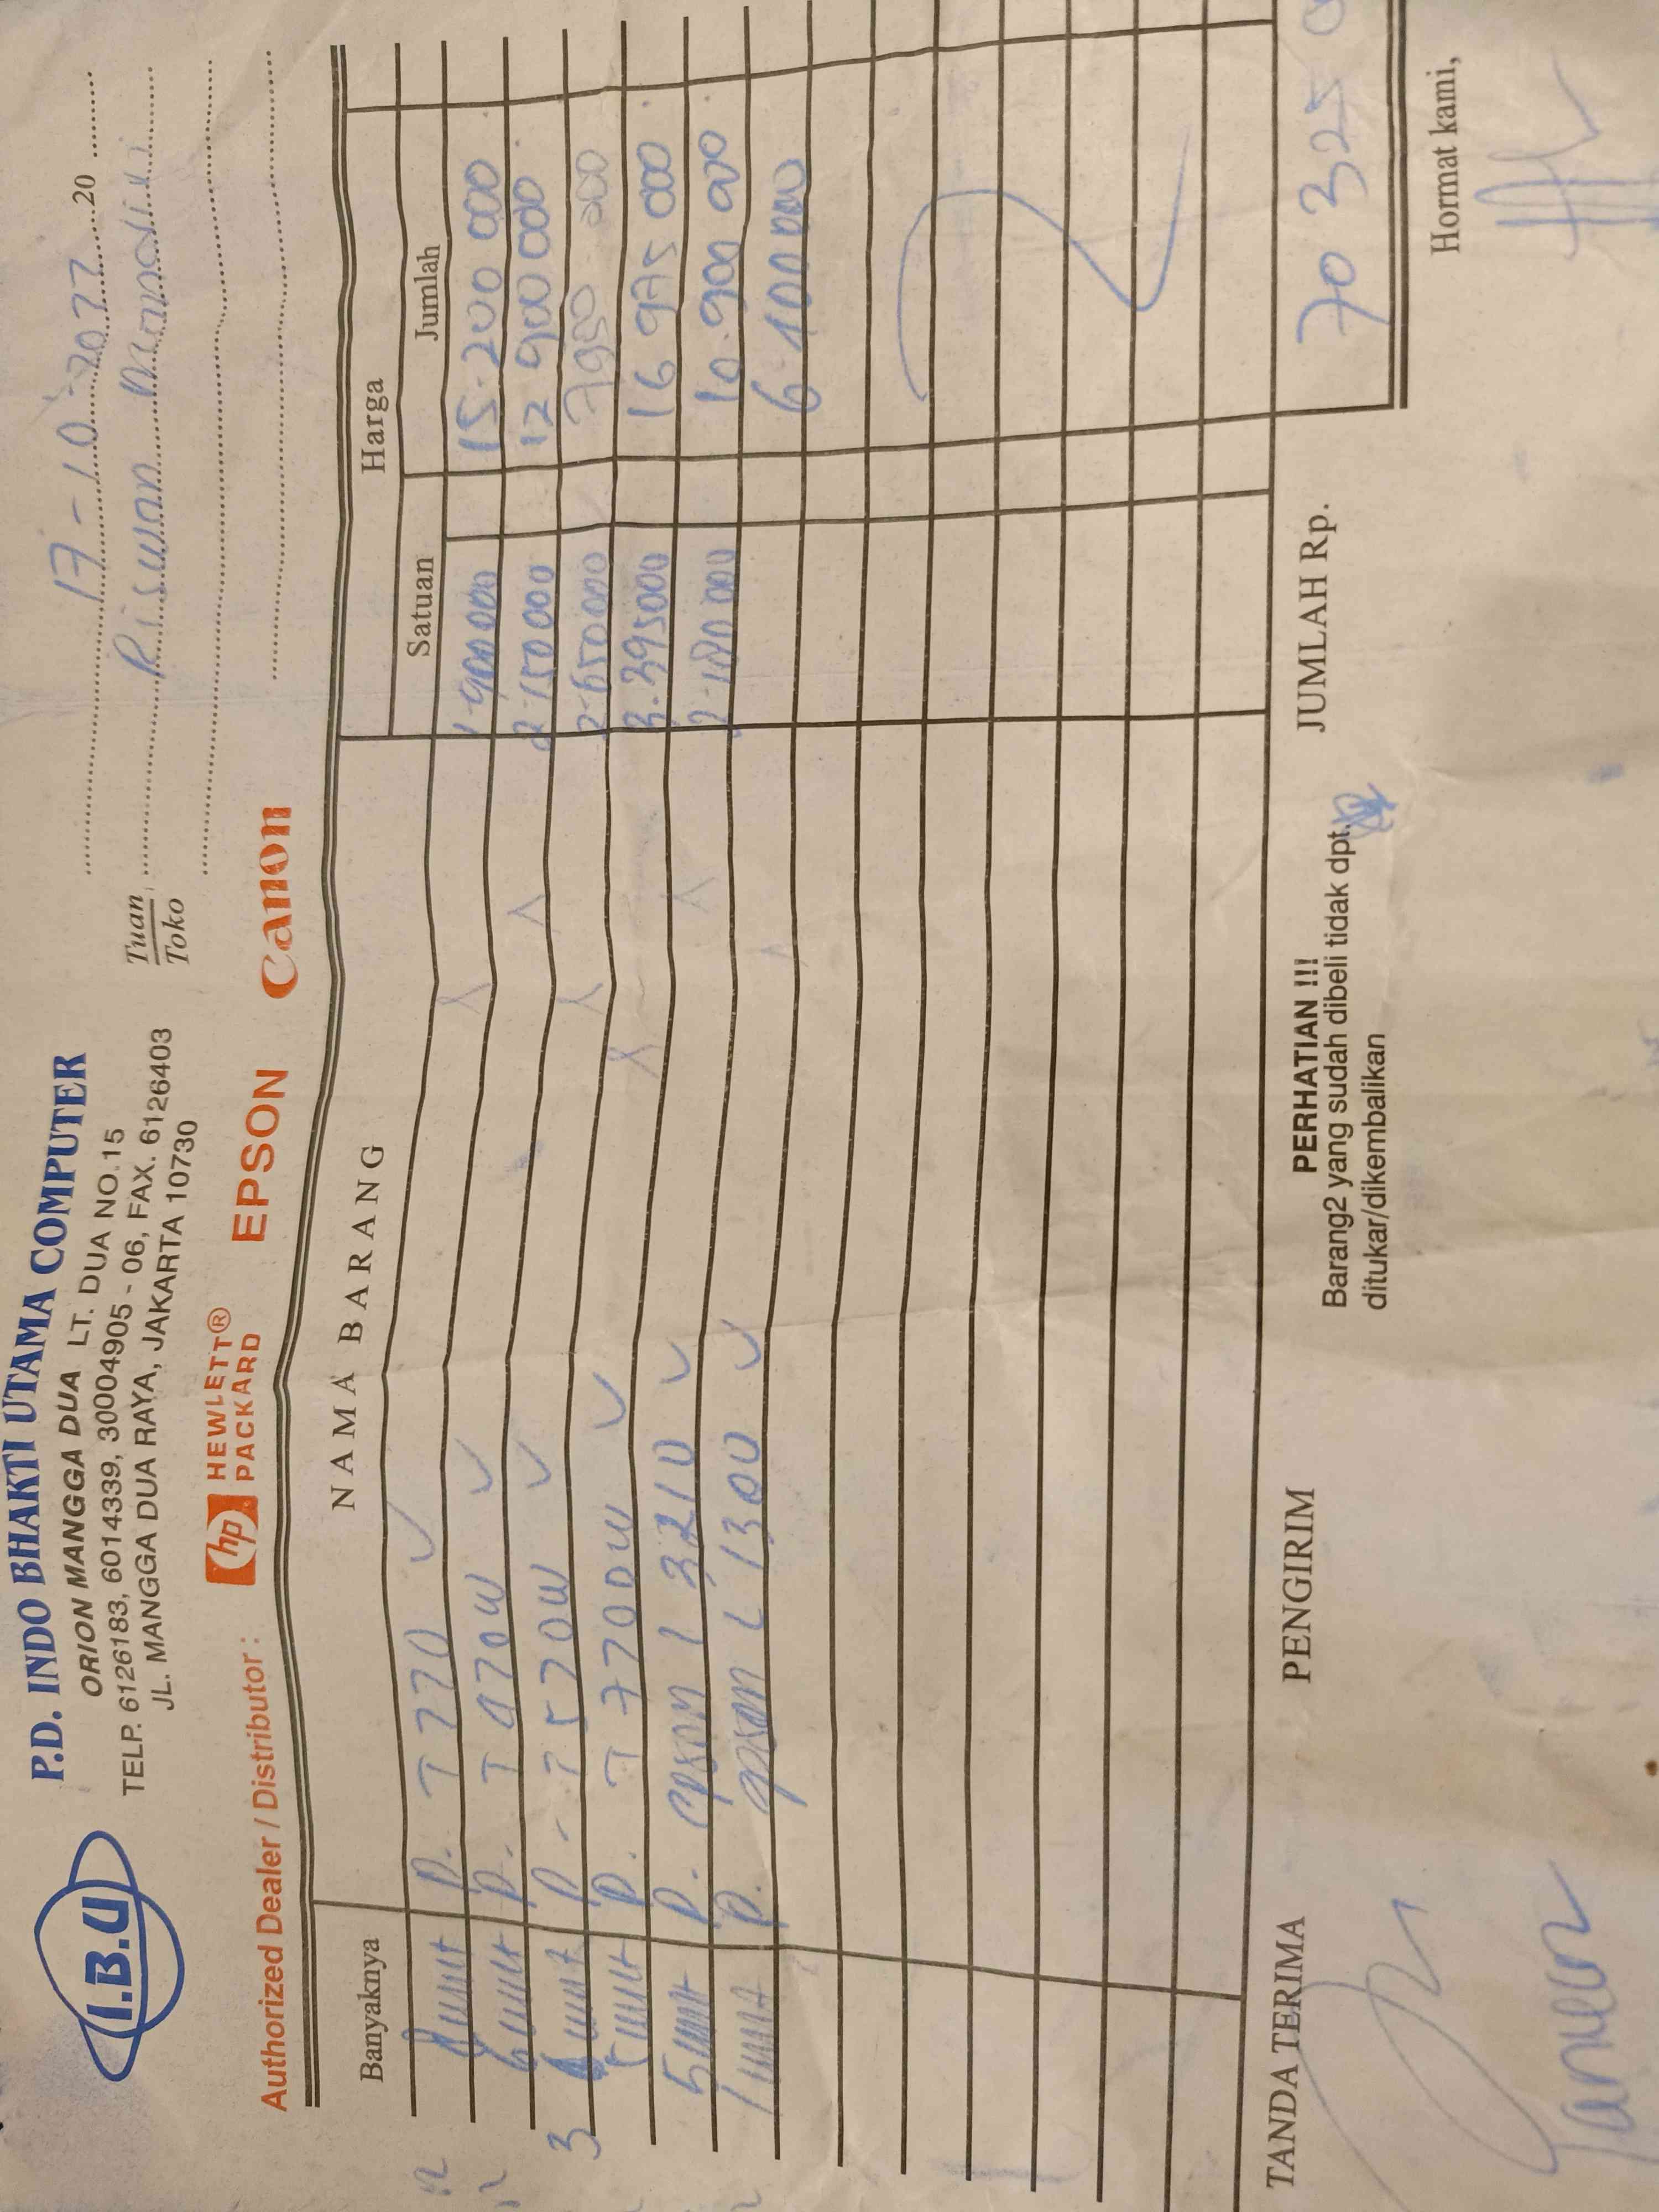 I.B.U
P.D. INDO BHAKTI UTAMA COMPUTER
ORION MANGGA DUA LT. DUA NO.15
TELP. 6126183, 6014339, 30004905 - 06, FAX. 6126403
JL. MANGGA DUA RAYA, JAKARTA 10730
17-10-2077 20
Tuan
Toko
Riswan
Authorized Dealer / Distributor :
hp HEWLETT® PACKARD
EPSON
Canon
Banyaknya NAMA BARANG Harga
Satuan Jumlah
8 unit P. T 770 1.900000 15.200 000
6 unit P. T 470W 2.150000 12 900 000
3 unit P. T 570W 2.650000 7950 000
5 unit P. T 7700W 3.395000 16 975 000
5 unit P. epson L 3210 2.180 000 10.900 000
1 unit P. epson L 1300 6 100 000
TANDA TERIMA
PENGIRIM
PERHATIAN !!!
Barang2 yang sudah dibeli tidak dpt.
ditukar/dikembalikan
JUMLAH Rp. 70 325
Hormat kami,